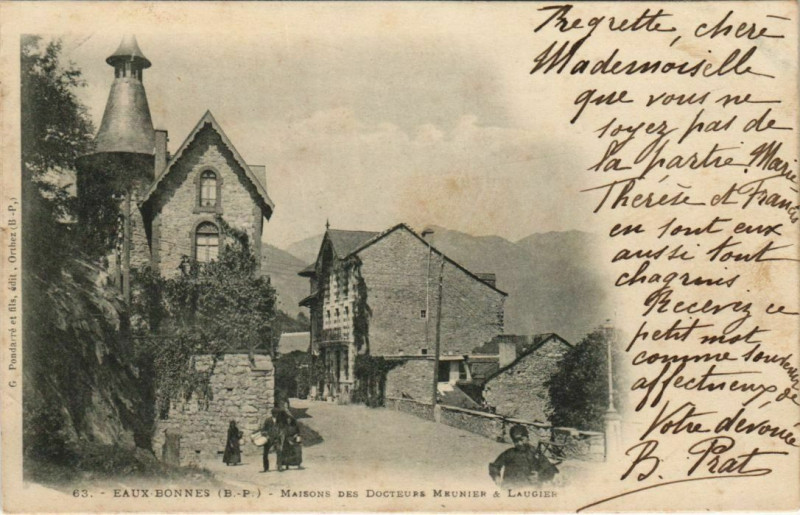 Regrette, chère
Mademoiselle
que vous ne
soyez pas de
la partie. Marie-
Thérèse et Francis
en sont eux
aussi tout
chagrins
Recevez ce
petit mot
comme souvenir
affectueux de
Votre dévouée
B. Prat
G. Pondarré et fils, édit., Orthez (B.-P.)
63. - EAUX-BONNES (B.-P.) - MAISONS DES DOCTEURS MEUNIER & LAUGIER